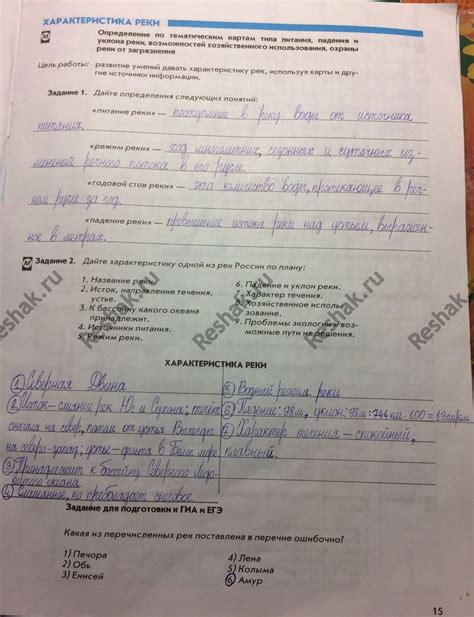 ХАРАКТЕРИСТИКА РЕКИ
Определение по тематическим картам типа питания, падения и
уклона реки, возможностей хозяйственного использования, охраны
реки от загрязнения
Цель работы: развитие умений давать характеристику рек, используя карты и дру-
гие источники информации.
Задание 1. Дайте определения следующих понятий:
«питание реки» — поступление в реку воды от источника
питания.
«режим реки» — ход многолетних, сезонных и суточных из-
менений речного потока в его русле.
«годовой сток реки» — это количество воды, протекающее в реч-
ном русле за год.
«падение реки» — превышение истока реки над устьем, выражен-
ное в метрах.
Задание 2. Дайте характеристику одной из рек России по плану:
1. Название реки.
2. Исток, направление течения,
устье.
3. К бассейну какого океана
принадлежит.
4. Источники питания.
5. Режим реки.
6. Падение и уклон реки.
7. Характер течения.
8. Хозяйственное исполь-
зование.
9. Проблемы экологии и воз-
можные пути их решения.
ХАРАКТЕРИСТИКА РЕКИ
1 Северная Двина
2 Исток - слияние рек Юг и Сухона; течёт
сначала на север, потом от устья Вычегды
на северо-запад; устье - дельта в Белом море
3 Принадлежит к бассейну Северного Ледо-
витого океана.
4 Смешанное, но преобладает снеговое.
5 Водный режим реки
6 Падение: 98м, уклон: 98м : 744км · 100 = 13
7 Характер течения - спокойный,
плавный.
Задание для подготовки к ГИА и ЕГЭ
Какая из перечисленных рек поставлена в перечне ошибочно?
1) Печора
2) Обь
3) Енисей
4) Лена
5) Колыма
6) Амур
15
Reshak.ru
Reshak.ru
Reshak.ru